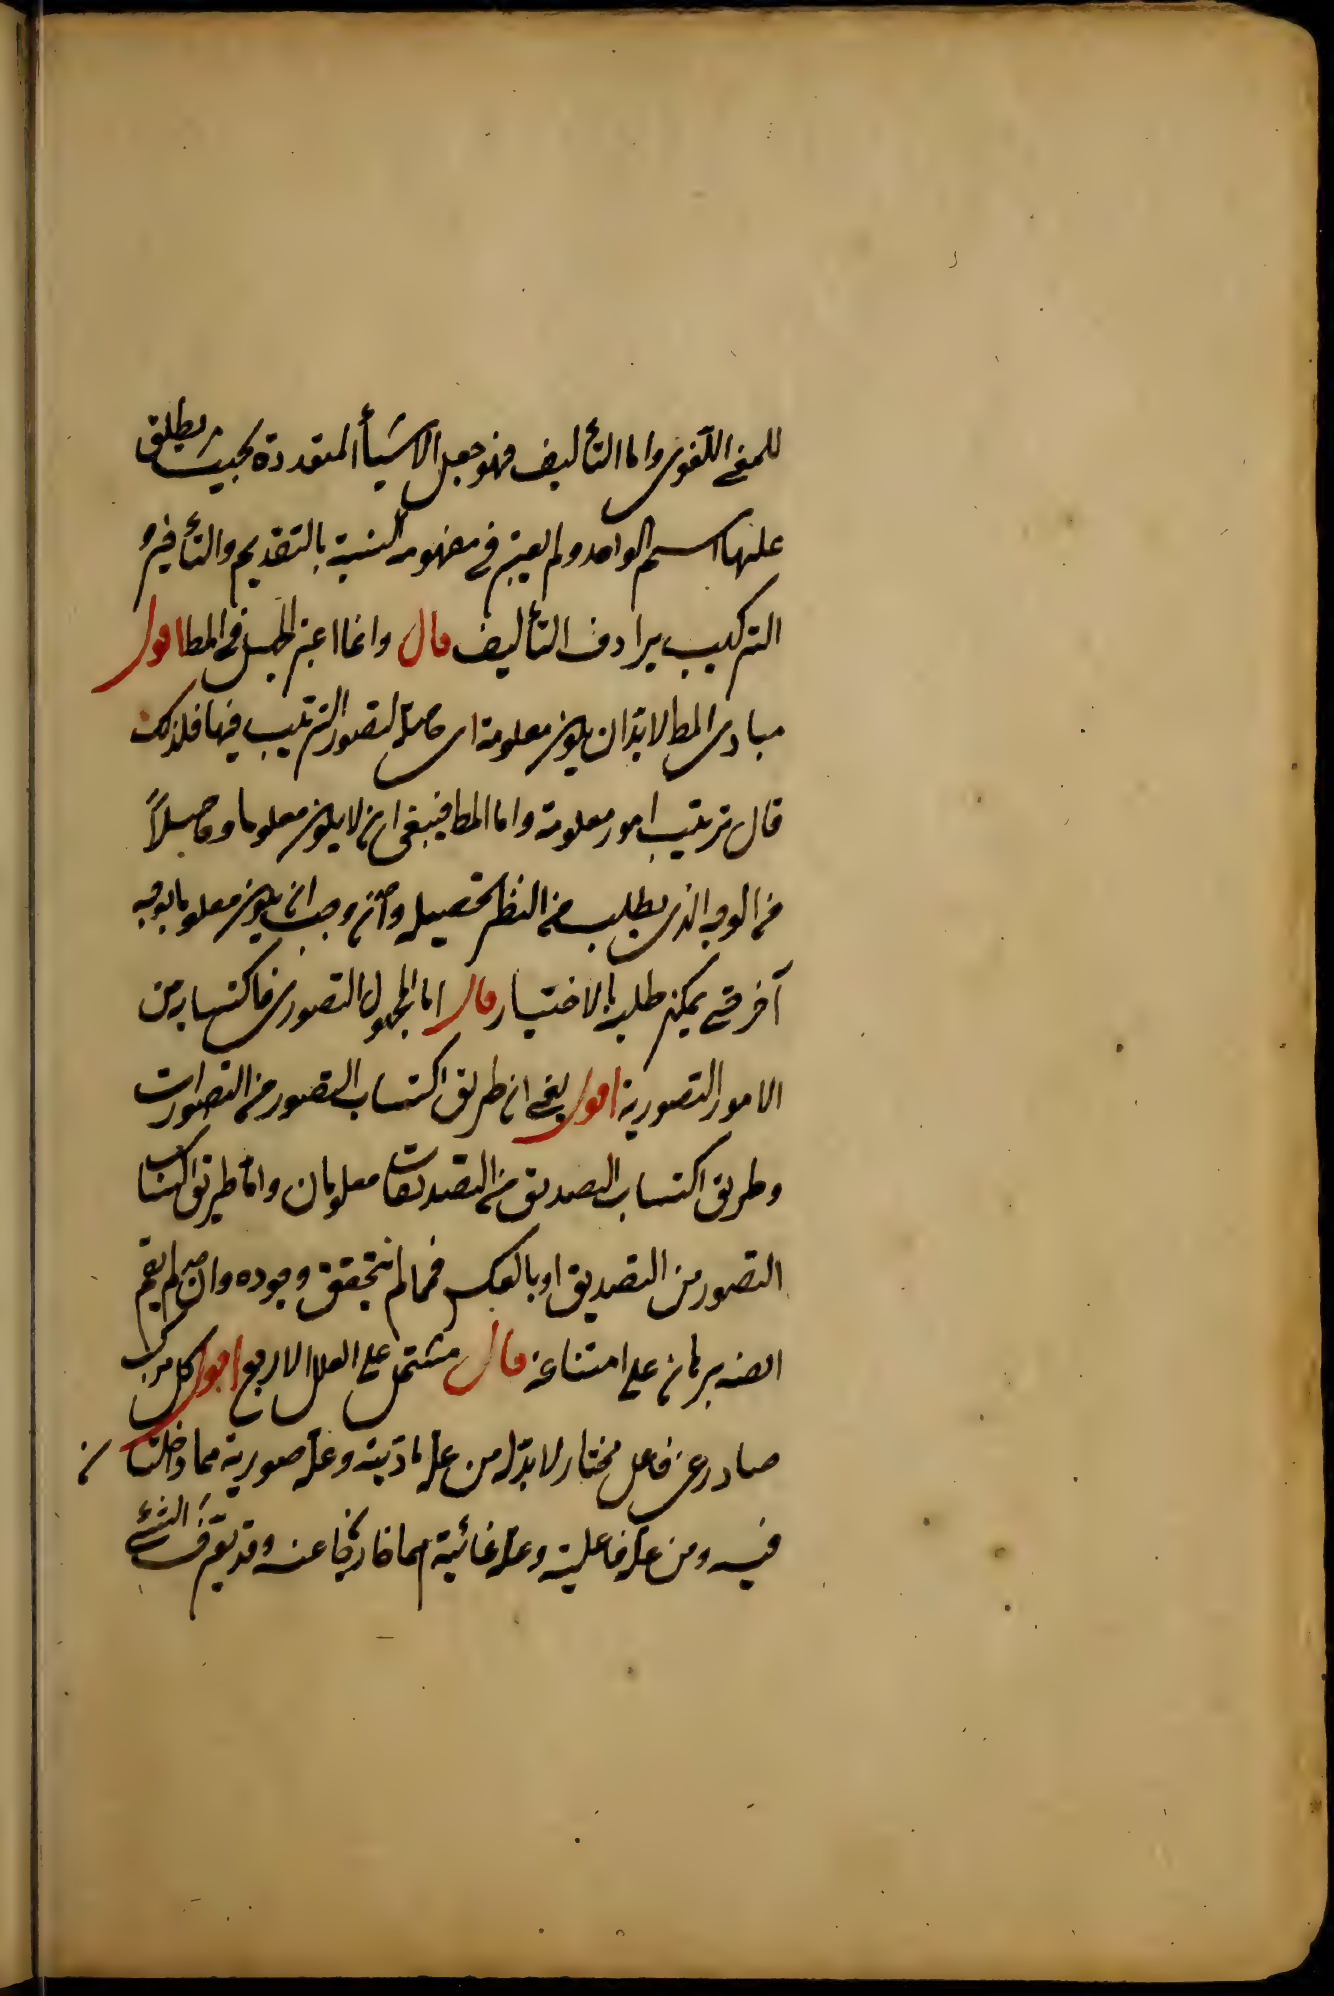 للمعنى اللغوى واما التأليف فهو جعل الاشيأ المتعددة بحيث يطلق
عليها اسم الواحد ولم يعتبر فى مفهومه النسبة بالتقديم والتأخير و
التركيب يرادف التأليف قال وانما اعتبر الجهل فى المط اقول
مبادى المط لا بدّ ان يكون معلومة اى حاصلة لتصور الترتيب فيها فلذلك
قال ترتيب امور معلومة واما المط فينبغى ان لا يكون معلوما وحاصلاً
من الوجه الذى يطلب من النظر تحصيله وان وجب ان يكون معلوما بوجه
آخر حتى يمكن طلبه بالاختيار قال اما المجهول التصورى فاكتسابه من
الامور التصورية اقول يعنى ان طريق اكتساب التصور من التصورات
وطريق اكتساب التصديق من التصديقات معلومان واما طريق اكتساب
التصور من التصديق او بالعكس فمما لم يتحقق وجوده وان لم يقم
ايضه برهان على امتناعه قال مشتمل على العلل الاربع اقول كل مركب
صادر عن فاعل مختار لا بدّ له من علة مادّية وعلة صورية هما داخلتان
فيه ومن علة فاعلية وعلة غائية هما خارجتان عنه وقد يعرّف الشئ